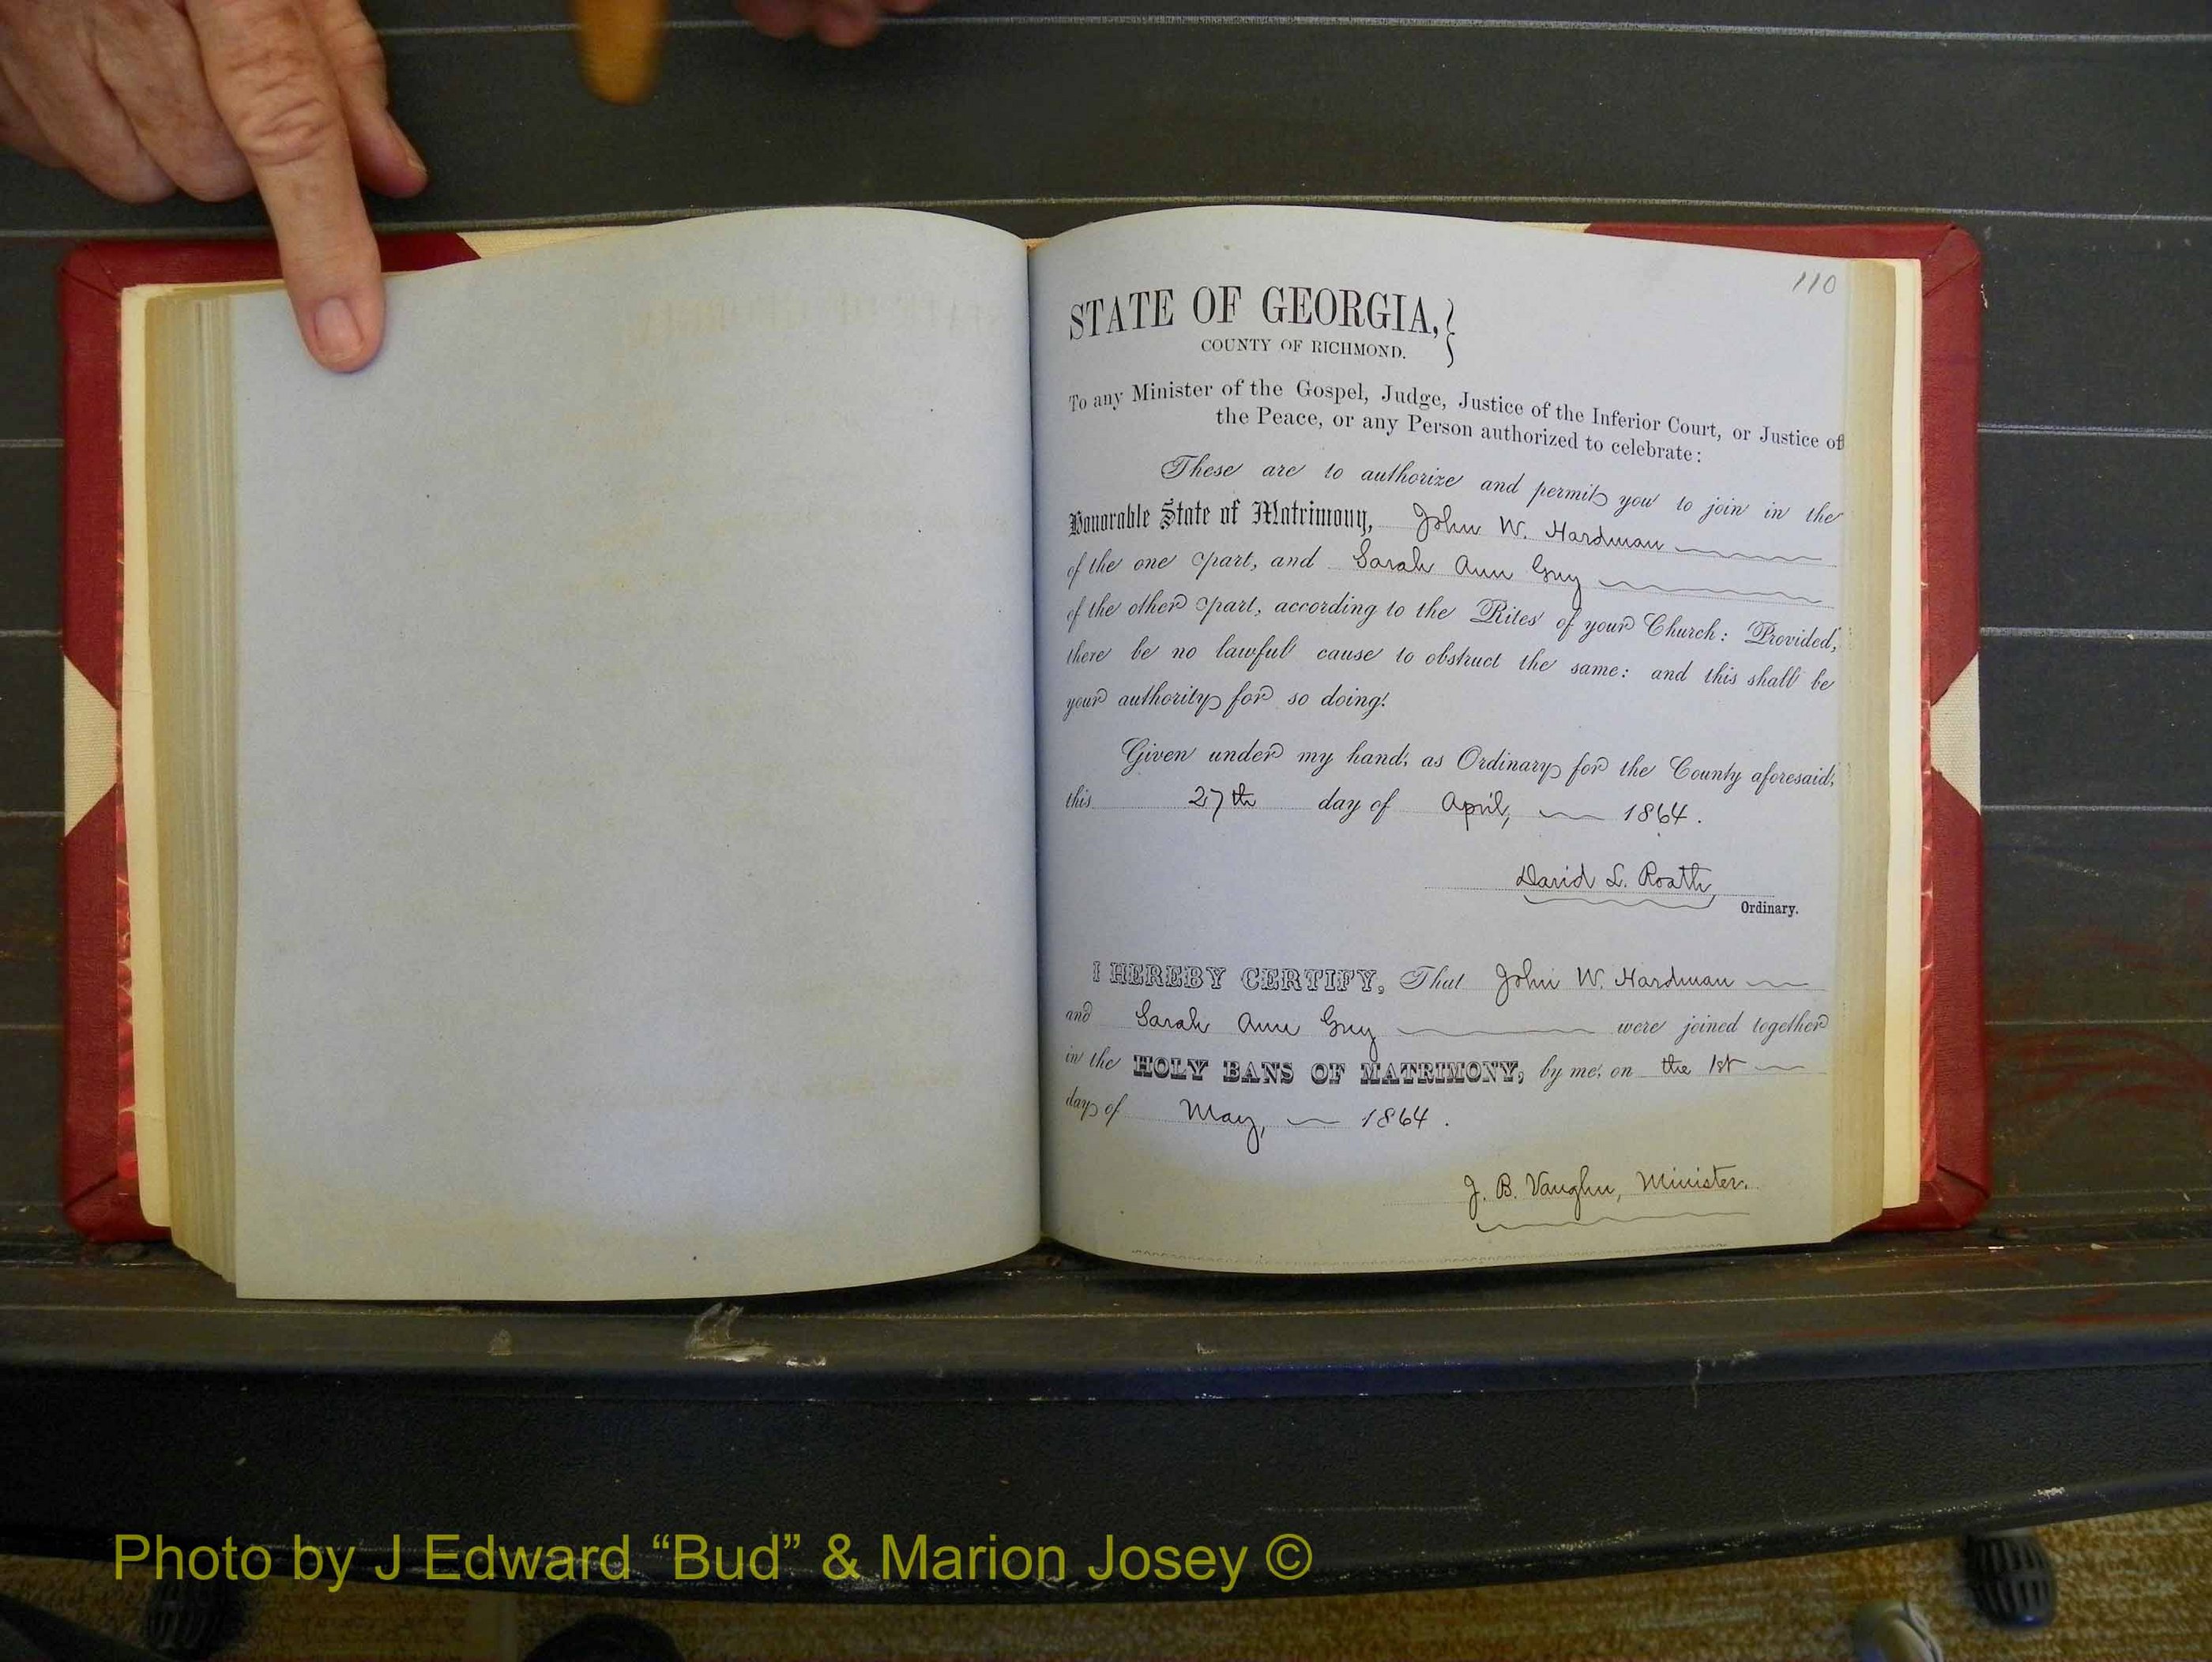 110
STATE OF GEORGIA,
COUNTY OF RICHMOND.
To any Minister of the Gospel, Judge, Justice of the Inferior Court, or Justice of
the Peace, or any Person authorized to celebrate:
These are to authorize and permit you to join in the
Honorable State of Matrimony, John W. Hardman
of the one part, and Sarah Ann Guy
of the other part, according to the Rites of your Church: Provided,
there be no lawful cause to obstruct the same: and this shall be
your authority for so doing.
Given under my hand, as Ordinary for the County aforesaid,
this 27th day of April, 1864.
David L. Roath,
Ordinary.
I HEREBY CERTIFY, That John W. Hardman
and Sarah Ann Guy were joined together
in the HOLY BANS OF MATRIMONY, by me, on the 1st
day of May, 1864.
J. B. Vaughn, Minister.
Photo by J Edward “Bud” & Marion Josey ©